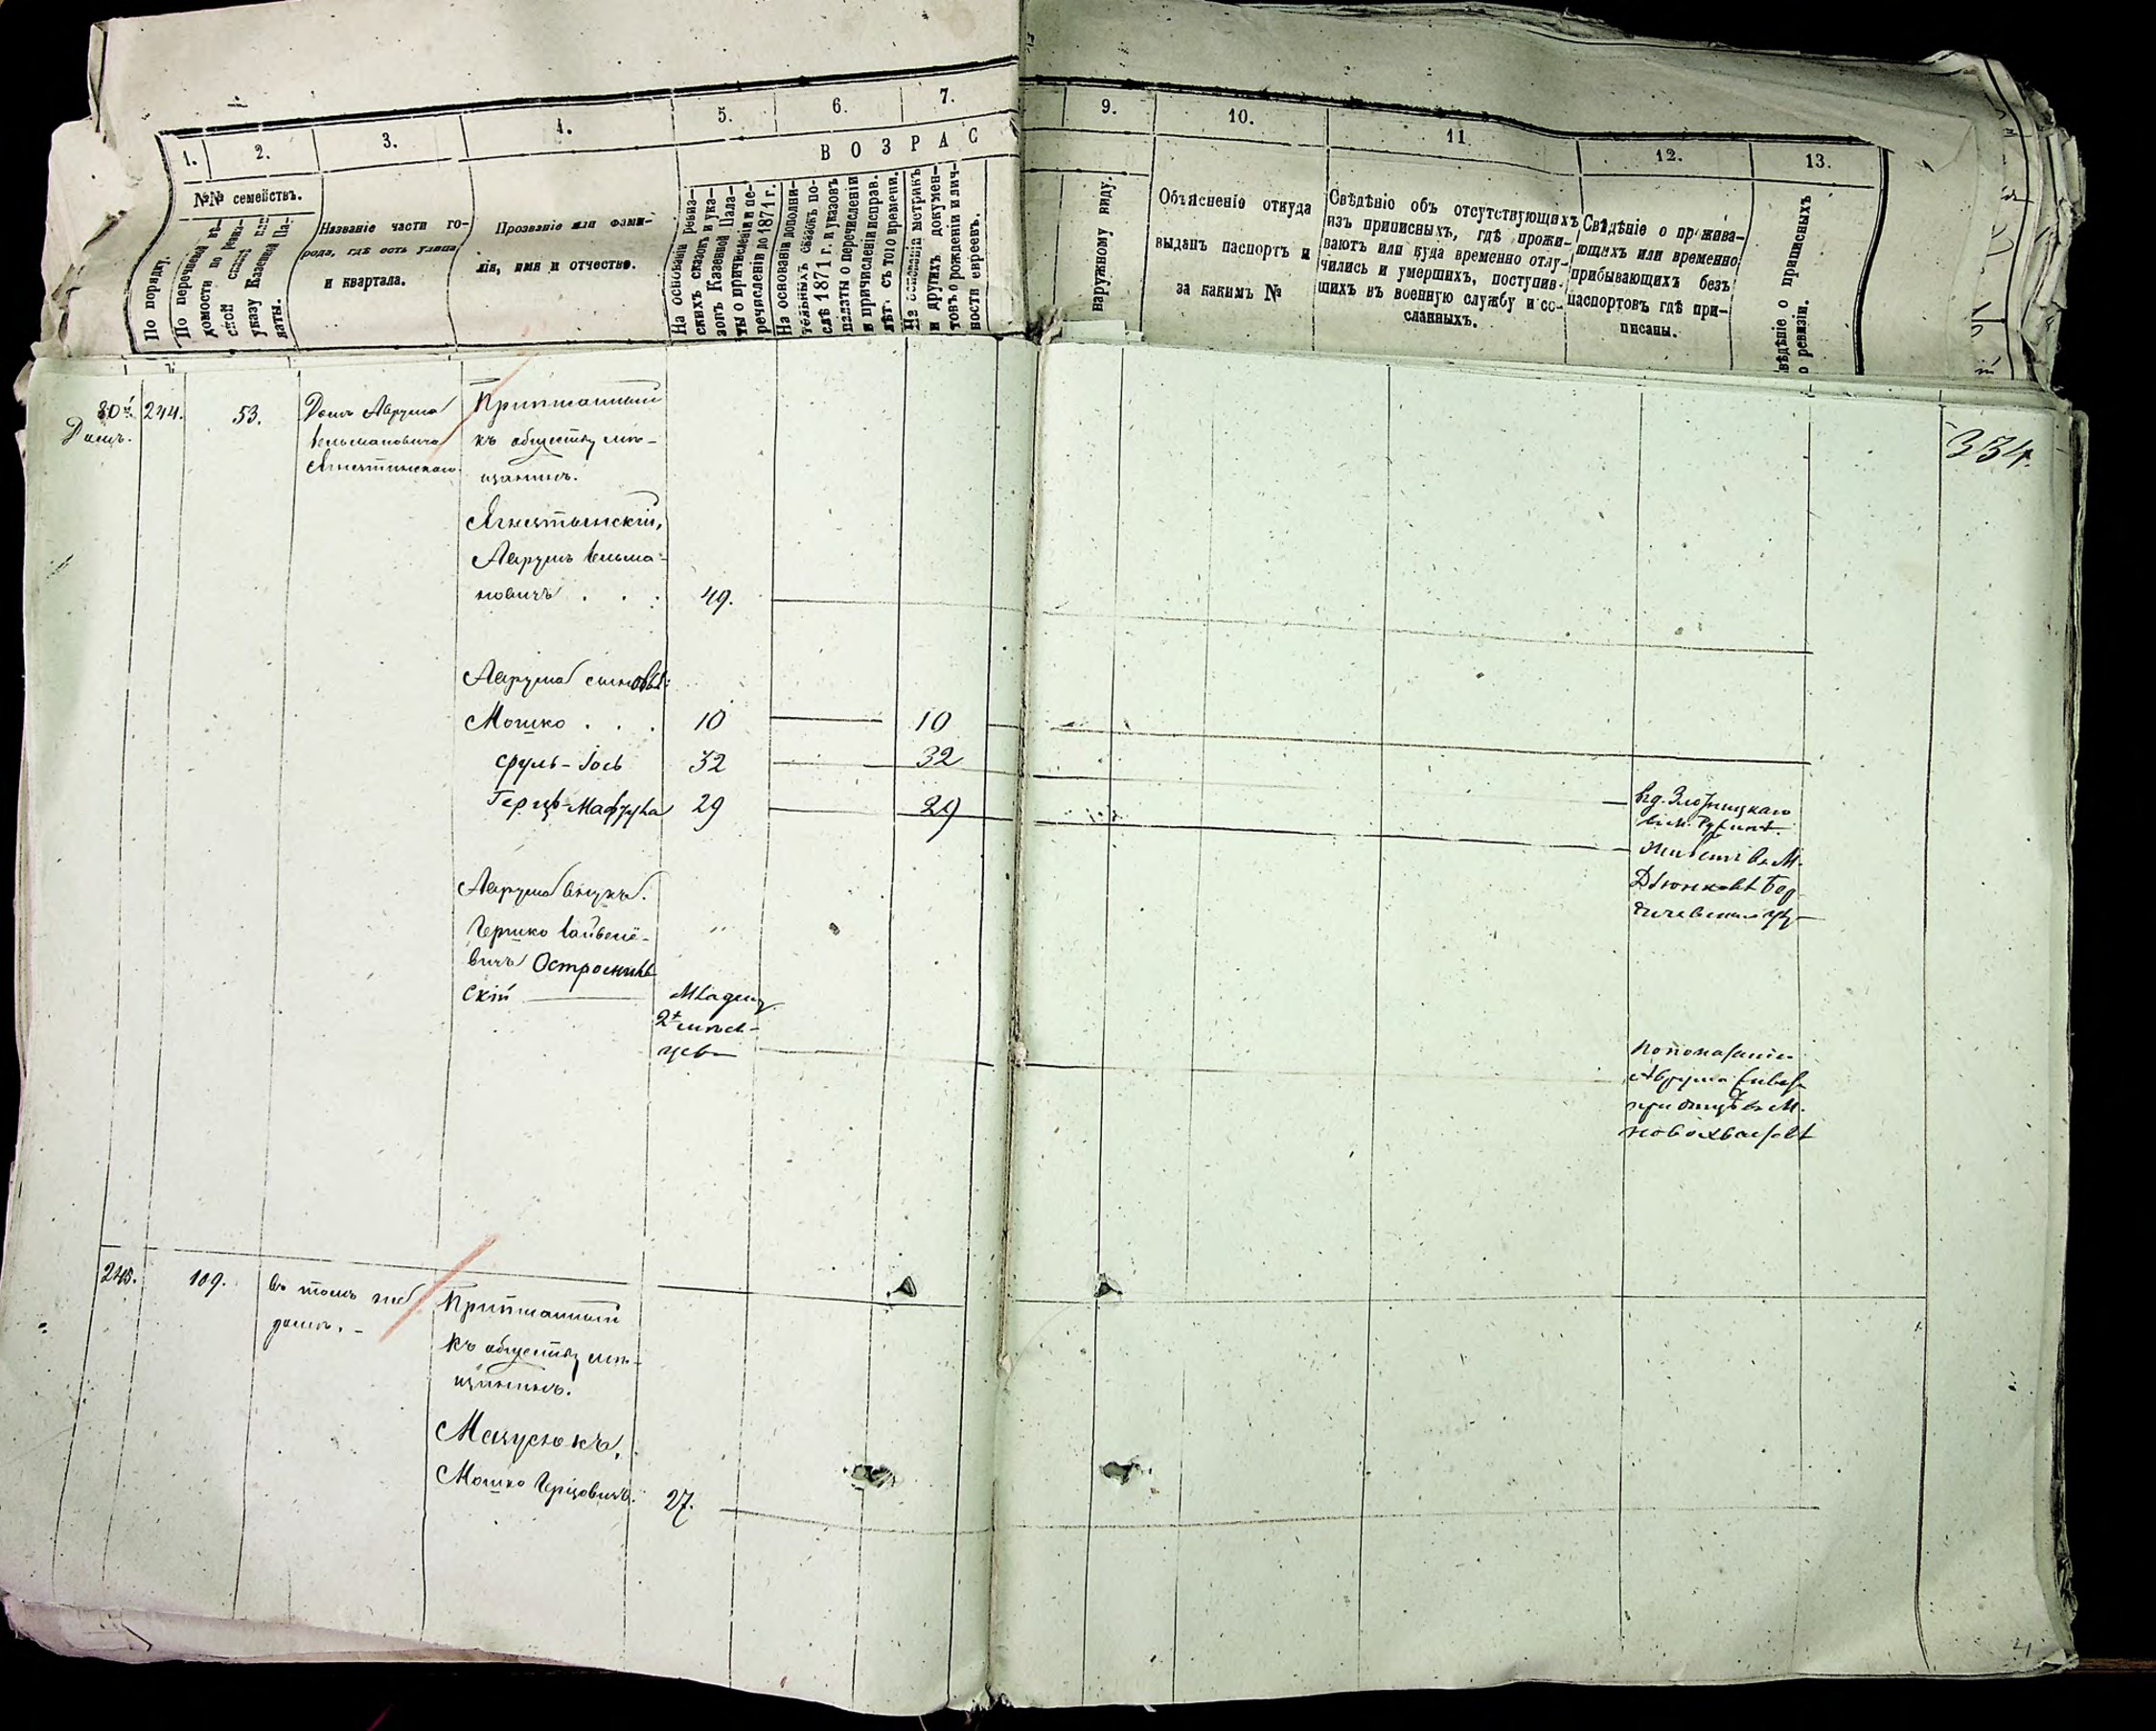 1.
2.
3.
4.
5.
6.
7.
ВОЗРАС
№№ семействъ.
По порядку.
По перечневой вѣ-
домости по реви-
ской сказкѣ или
указу Казенной Па-
латы.
Названіе части го-
рода, гдѣ есть улица
и квартала.
Прозваніе или фами-
лія, имя и отчество.
На основаніи ревиз-
скихъ сказокъ и ука-
зовъ Казенной Пала-
ты о причисленіи и пе-
речисленіи до 1871 г.
На основаніи дополни-
тельныхъ сказокъ по-
слѣ 1871 г. и указовъ
палаты о перечисленіи
и причисленіи исправ.
лѣт. съ того времени.
На основаніи метрикъ
и другихъ докумен-
товъ о рожденіи и лич-
ности евреевъ.
9.
10.
11.
12.
13.
наружному виду.
Объясненіе откуда
выданъ паспортъ и
за какимъ №
Свѣдѣніе объ отсутствующихъ
изъ приписныхъ, гдѣ прожи-
ваютъ или куда временно отлу-
чились и умершихъ, поступив-
шихъ въ военную службу и со-
сланныхъ.
Свѣдѣніе о прожива-
ющихъ или временно
прибывающихъ безъ
паспортовъ гдѣ при-
писаны.
вѣдѣніе о приписныхъ
о ревизіи.
244.
53.
Домъ Аврума
Вельмановича
Ягнятинскаго
Приписанный
къ обществу мѣ-
щанинъ.
Ягнятинскій,
Аврумъ Вельма-
новичъ . . .
49.
Аврума сыновья:
Мошко . . .
10
10
Сруль-Іось
32
32
Герцъ-
29
29
Аврума внукъ.
Гершко
вичъ
скій
Младенц
2х мѣся-
цевъ
живетъ въ М.
По показанію
Аврума
при отцѣ въ М.
354.
245.
109.
въ томъ же
домѣ. -
Приписанный
къ обществу мѣ-
щанинъ.
Мошко Герцовичъ.
27.